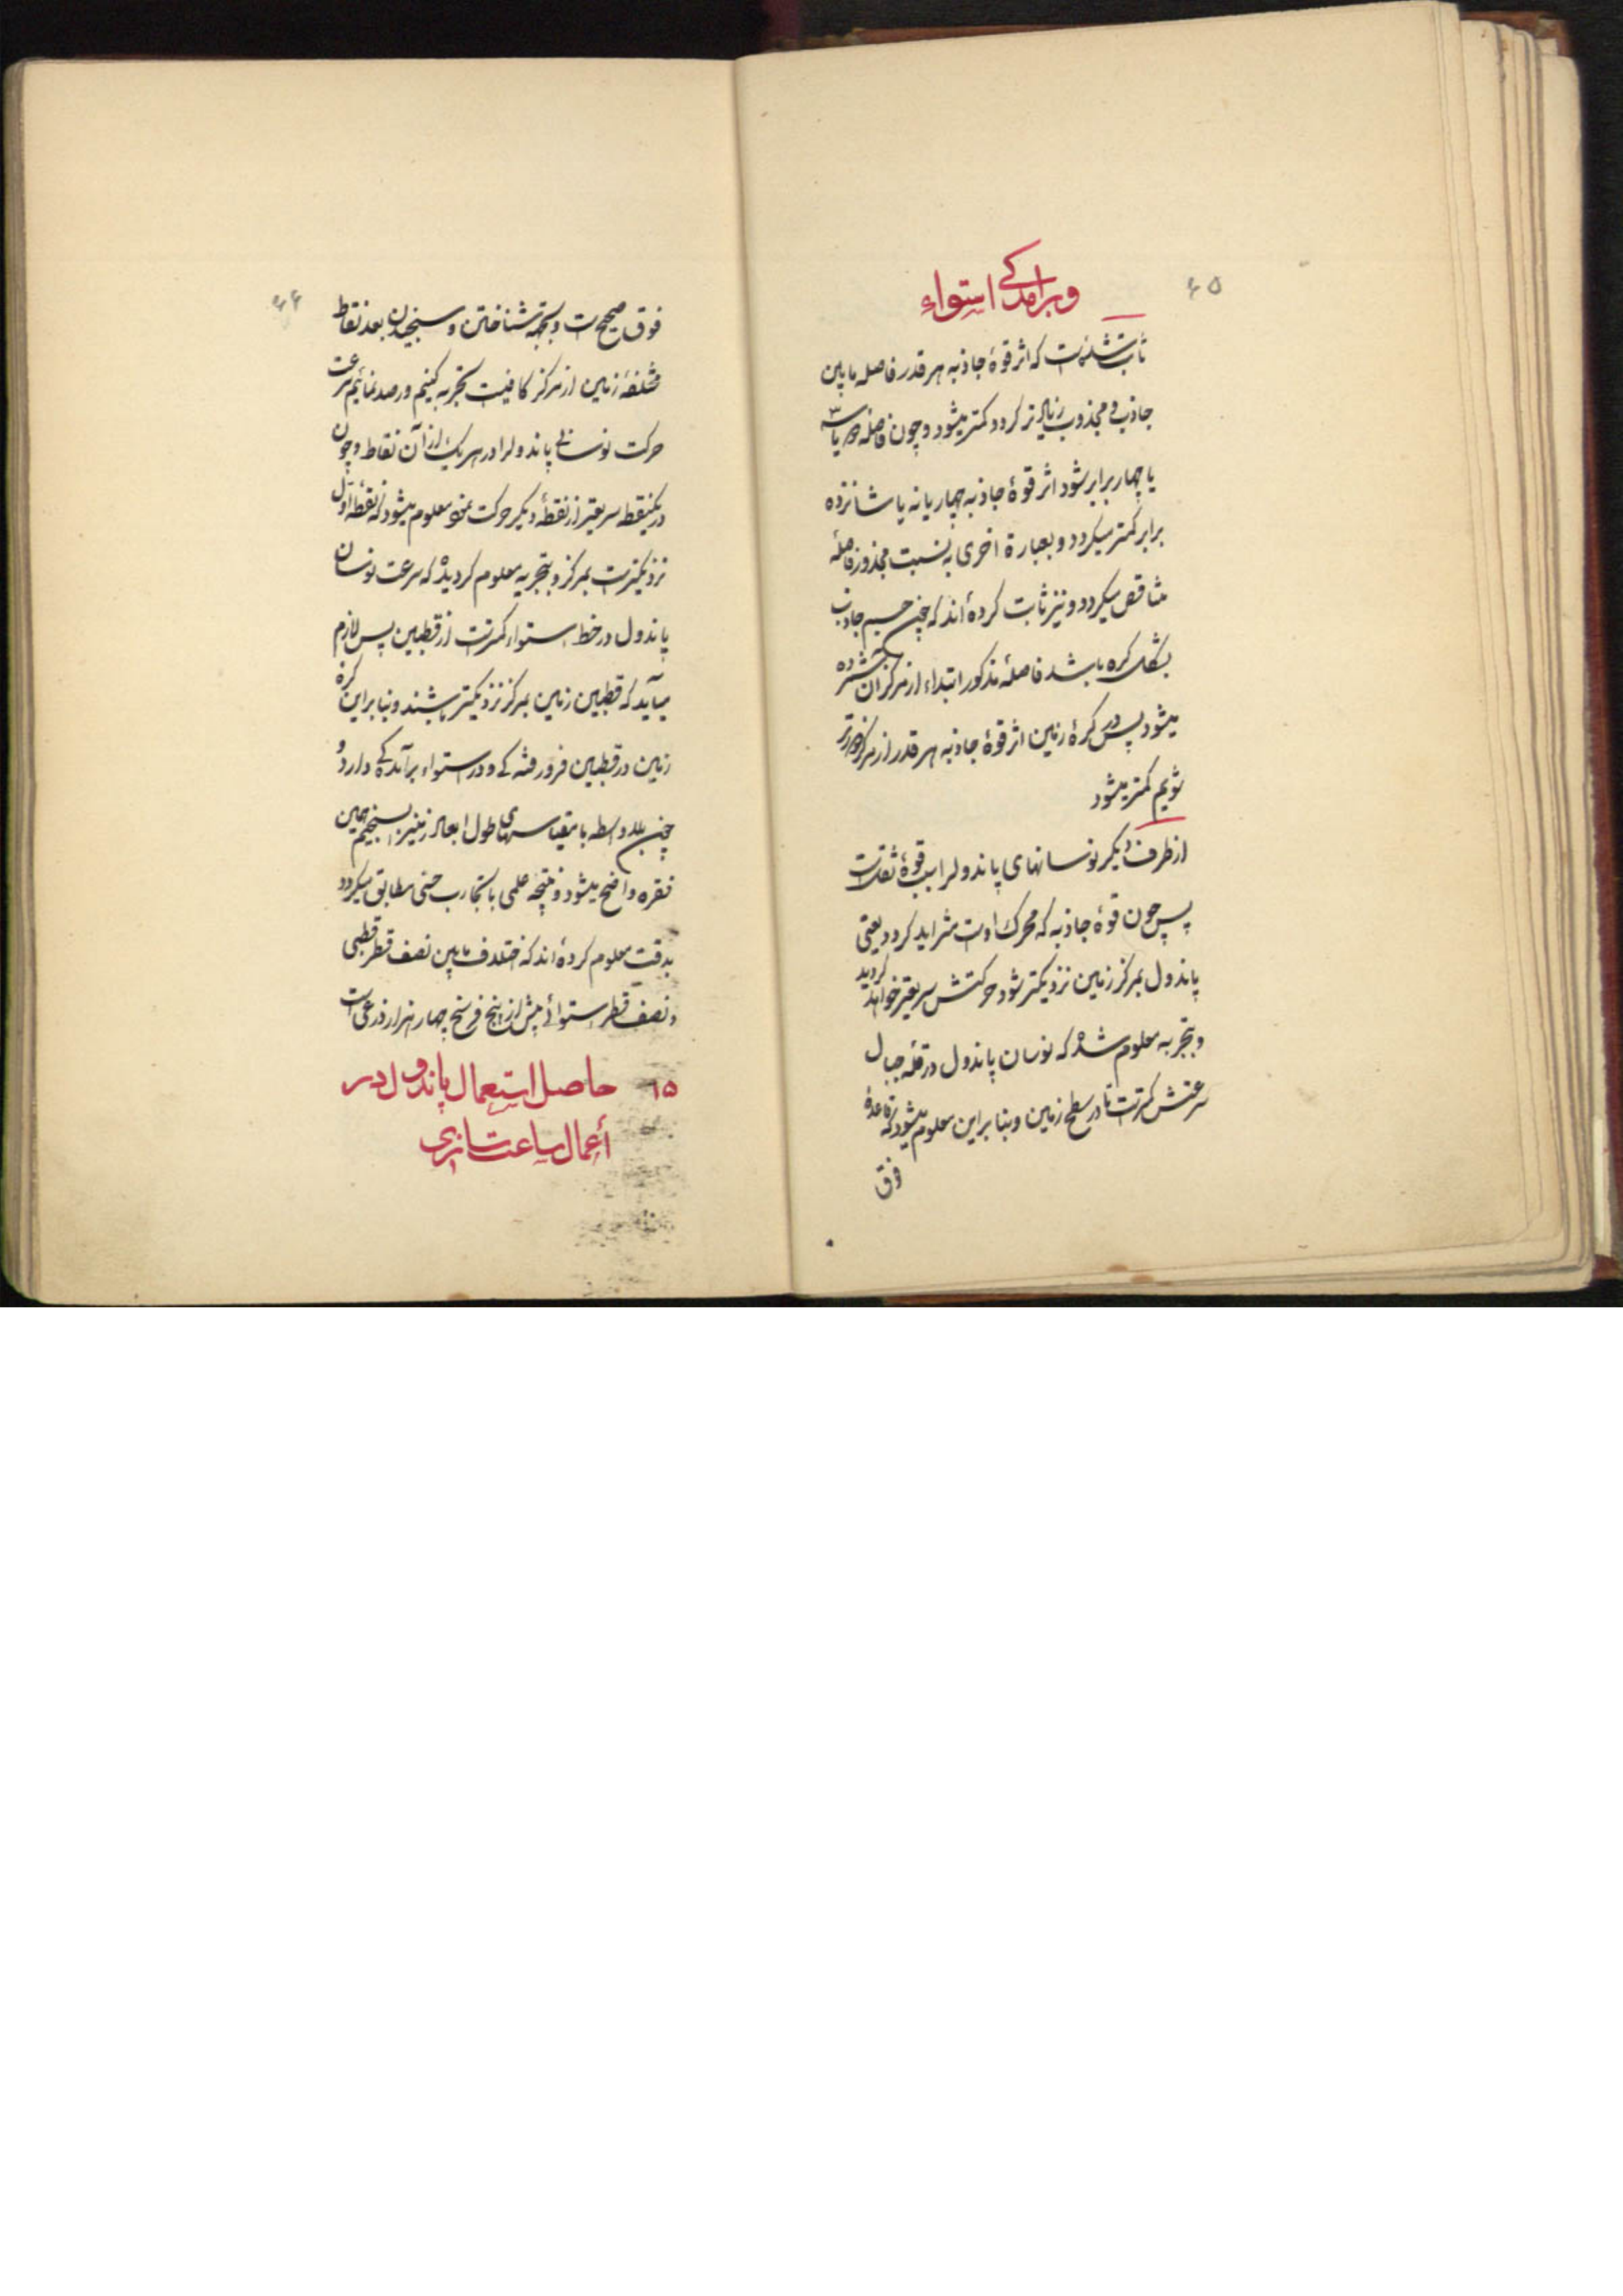 ۶۵
وبرامدکی استواء
ثابت شده است که اثر قوهٔ جاذبه هر قدر فاصله مابین
جاذب و مجذوب زیادتر کردد کمتر میشود و چون فاصله دو یا سه
یا چهار برابر شود اثر قوهٔ جاذبه چهار یا نه یا شانزده
برابر کمتر میکردد و بعبارة اخری به نسبت مجذور فاصلهٔ
متناقص میکردد و نیز ثابت کرده‌اند که چون جسم جاذب
بشکل کره باشد فاصلهٔ مذکور ابتداء از مرکز آن شمرده
میشود پس در کرهٔ زمین اثر قوهٔ جاذبه هر قدر از مرکز دورتر
شویم کمتر میشود
از طرف دیکر نوسانهای پاندول را سبب قوهٔ ثقل است
پس چون قوهٔ جاذبه که محرک اوست متزاید کردد یعنی
پاندول بمرکز زمین نزدیکتر شود حرکتش سریعتر خواهد کردید
و بتجربه معلوم شده که نوسان پاندول در قلهٔ جبال
سرعتش کمتر است تا در سطح زمین و بنابراین معلوم میشود که قاعدهٔ
فوق
۶۶
فوق صحیح است و بجهة شناختن و سنجیدن بعد نقاط
مختلفهٔ زمین از مرکز کافیست تجربه کنیم و رصد نمائیم سرعت
حرکت نوسانی پاندول را در هر یک از آن نقاط و چون
در یکنقطه سریعتر از نقطهٔ دیکر حرکت نمود معلوم میشود که نقطه اول
نزدیکتر است بمرکز و بتجربه معلوم کردیده که سرعت نوسان
پاندول در خط استواء کمتر است از قطبین پس لازم
میآید که قطبین زمین بمرکز نزدیکتر باشند و بنابراین کره
زمین در قطبین فرورفته‌کی و در استواء برآمده‌کی دارد و
چون بلاواسطه با مقیاسهای طول ابعاد زمین را بسنجیم همین
فقره واضح میشود و نتیجه علمی با تجارب حسی مطابق میکردد
بدقت معلوم کرده‌اند که اختلاف مابین نصف قطر قطبی
و نصف قطر استوائی بیش از پنج فرسخ چهار هزار ذرعی است
۱۵ حاصل استعمال پاندول در
أعمال ساعت سازی